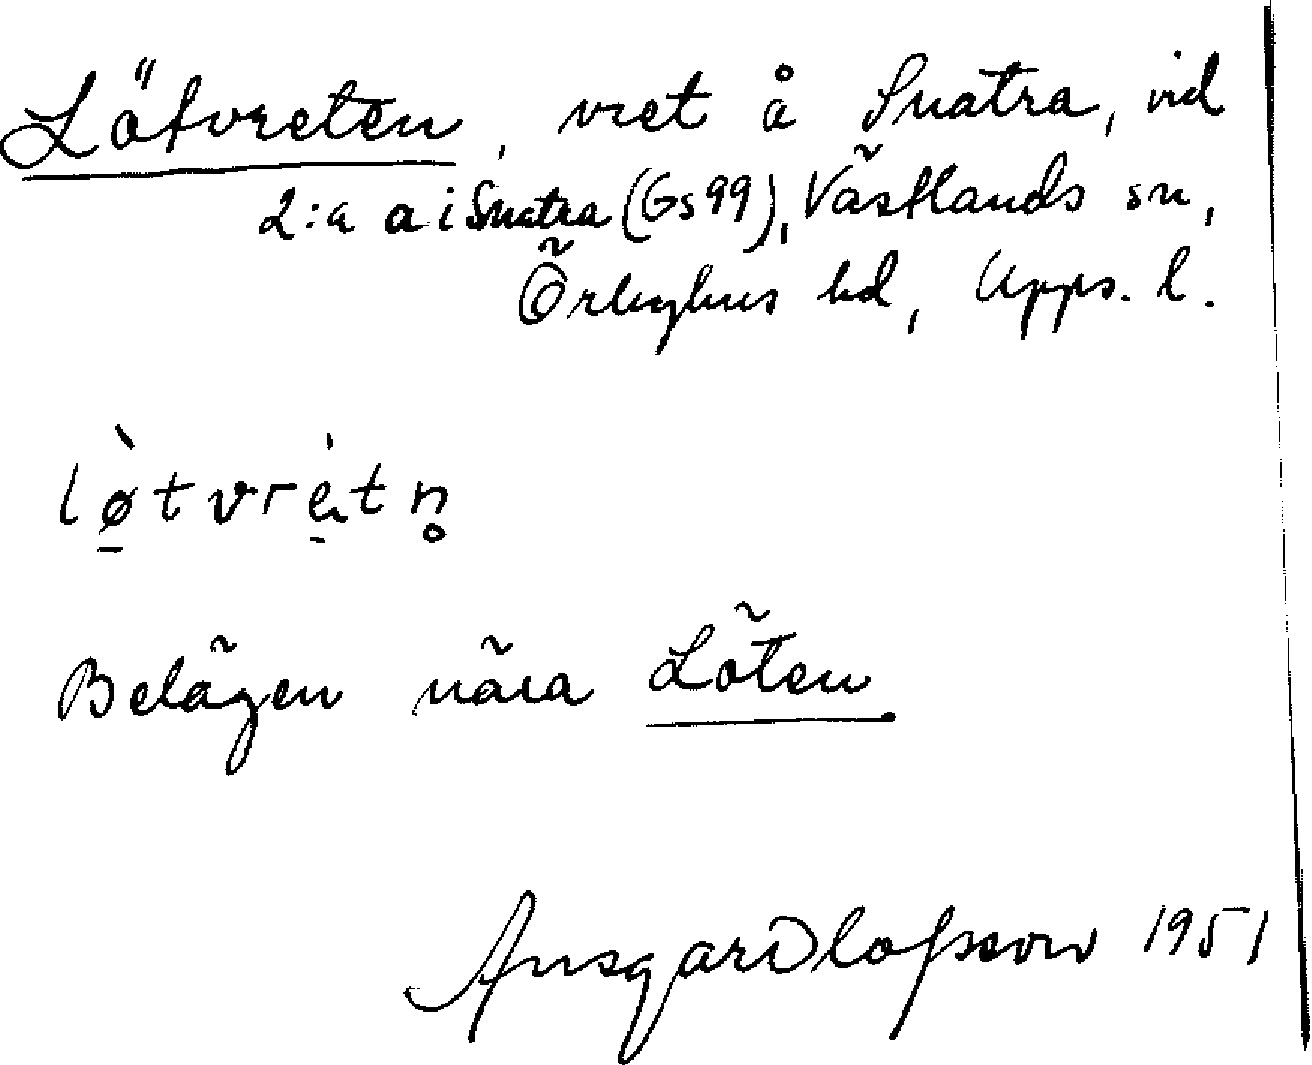 Lötvreten, vret å Snatra, vid
2:a a i Snatra (Gs 99), Västlands sn,
Örbyhus hd, Upps. l.
lø̀tvrètn̥
Belägen nära Löten.
Ansgar Olofsson 1951